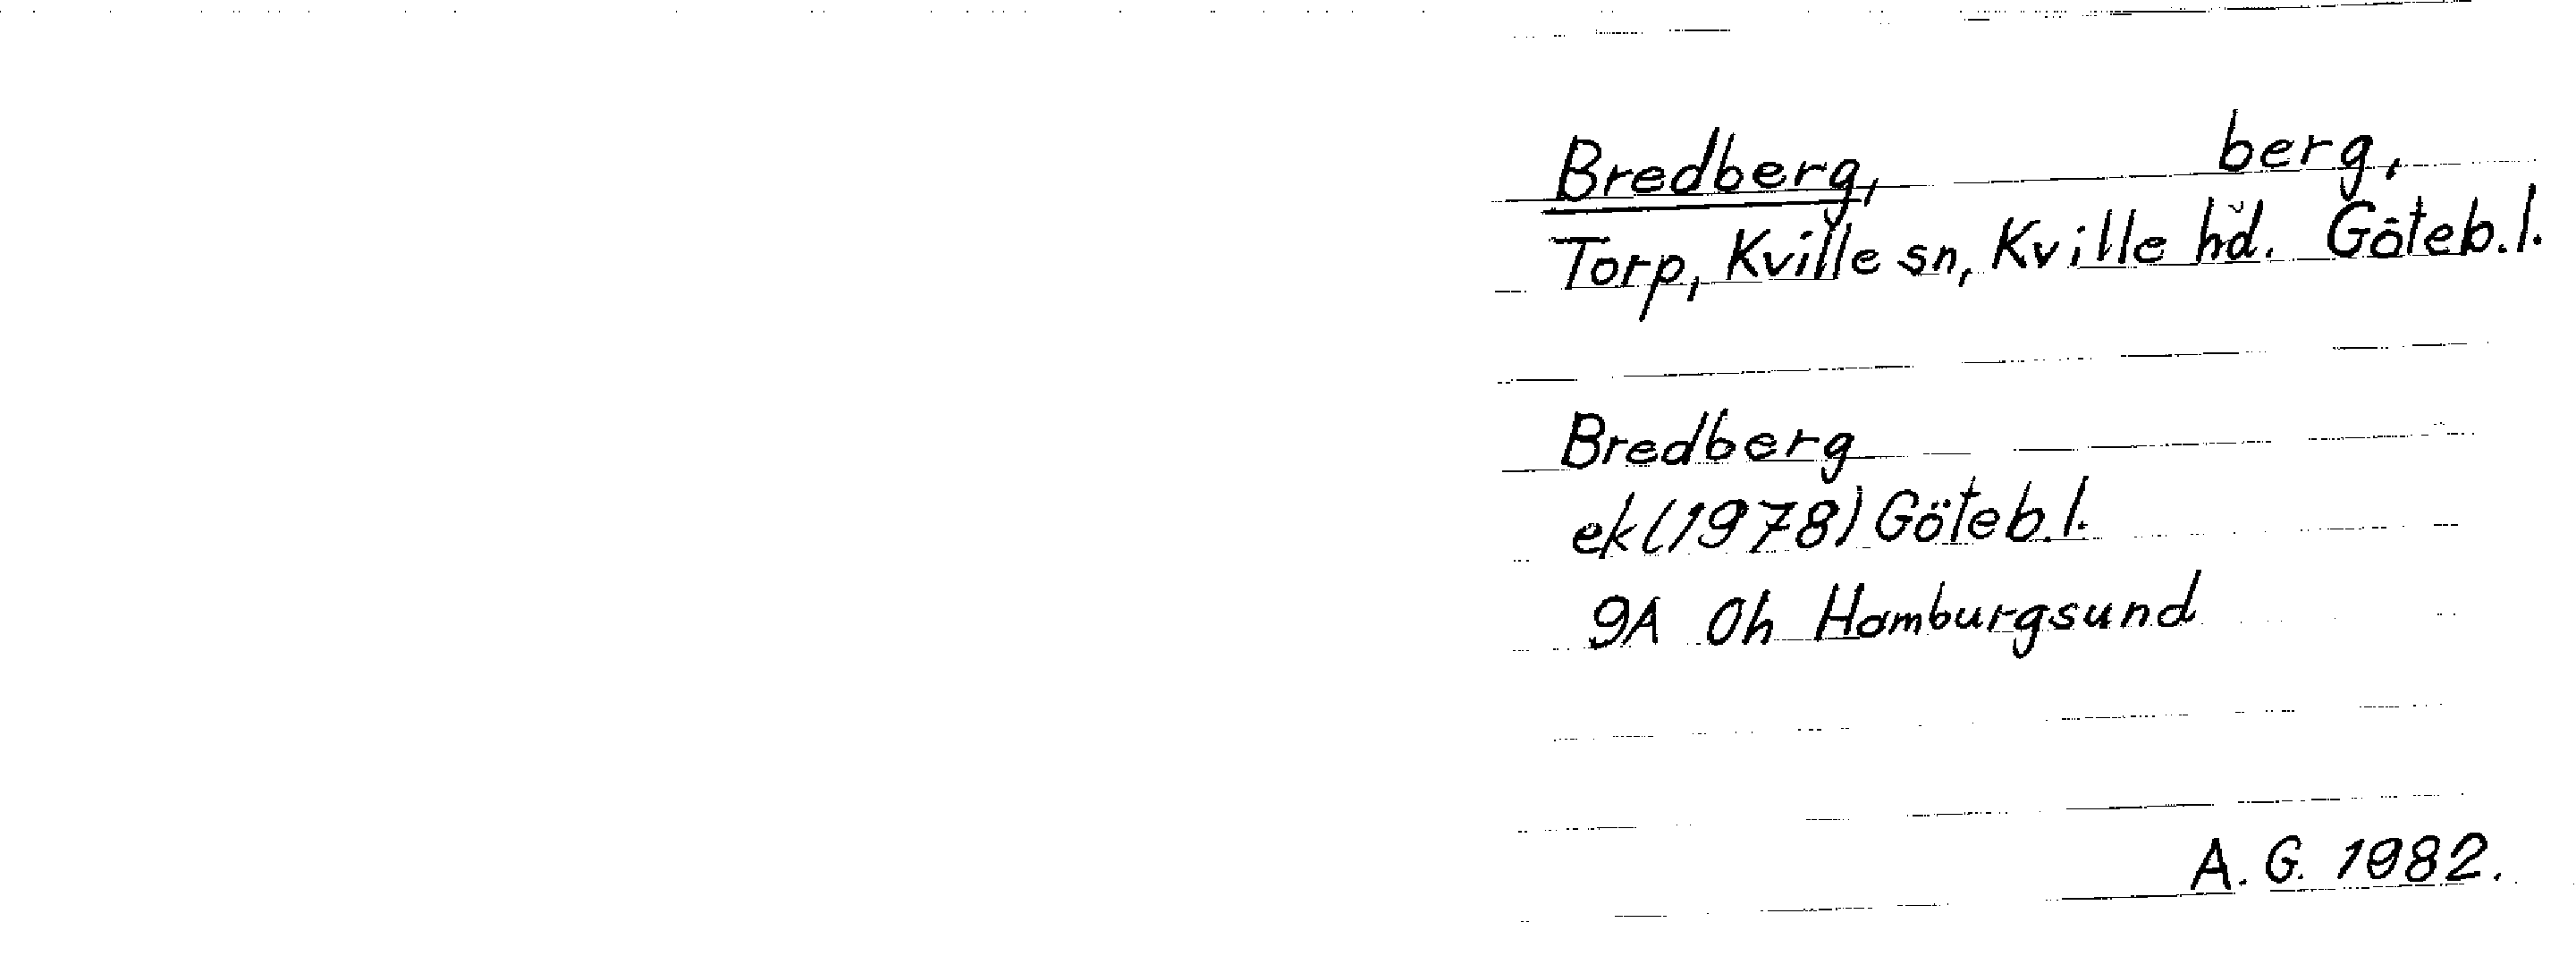 Bredberg, berg,
Torp, Kville sn, Kville hd. Göteb.l.
Bredberg
ek (1978) Göteb.l.
9A 0h Hamburgsund
A.G. 1982.